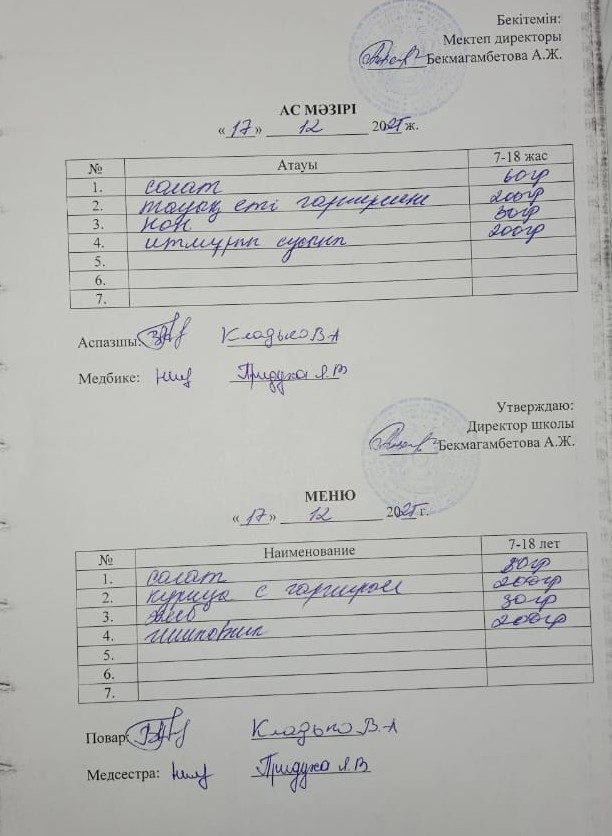 Бекітемін:
Мектеп директоры
Бекмагамбетова А.Ж.
АС МӘЗІРІ
« 17 » 12 2025 ж.
№ Атауы 7-18 жас
1. салат 60гр
2. тауық еті гарнирмен 200гр
3. нан 30гр
4. итмұрын сусын 200гр
5.
6.
7.
Аспазшы: Кладько В А
Медбике: Придуха Я.В
Утверждаю:
Директор школы
Бекмагамбетова А.Ж.
МЕНЮ
« 17 » 12 2025 г.
№ Наименование 7-18 лет
1. салат
2. курица с гарниром 200гр
3. хлеб 30гр
4. шиповник 200гр
5.
6.
7.
Повар: Кладько В-А
Медсестра: Придуха Я.В